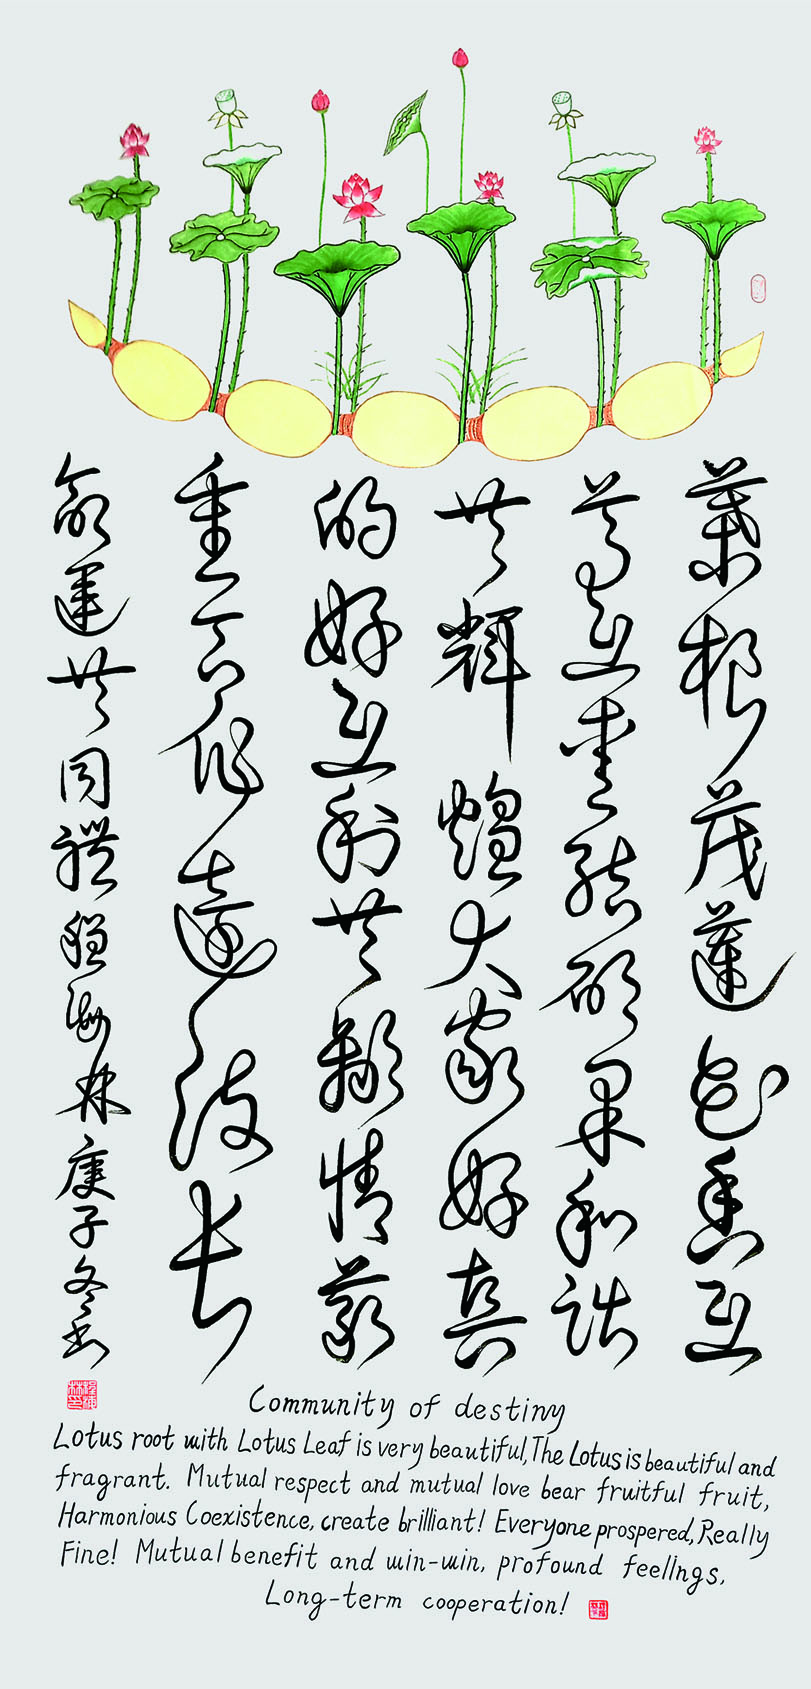 葉根茂蓮花香互
尊互愛結碩果和諧
共輝煌大家好真
的好互利共贏情義
重合作遠長
命運共同體 程海林 庚子冬书
Community of destiny
Lotus root with Lotus Leaf is very beautiful, The Lotus is beautiful and
fragrant. Mutual respect and mutual love bear fruitful fruit,
Harmonious Coexistence, create brilliant! Everyone prospered, Really
Fine! Mutual benefit and win-win, profound feelings,
Long-term cooperation!